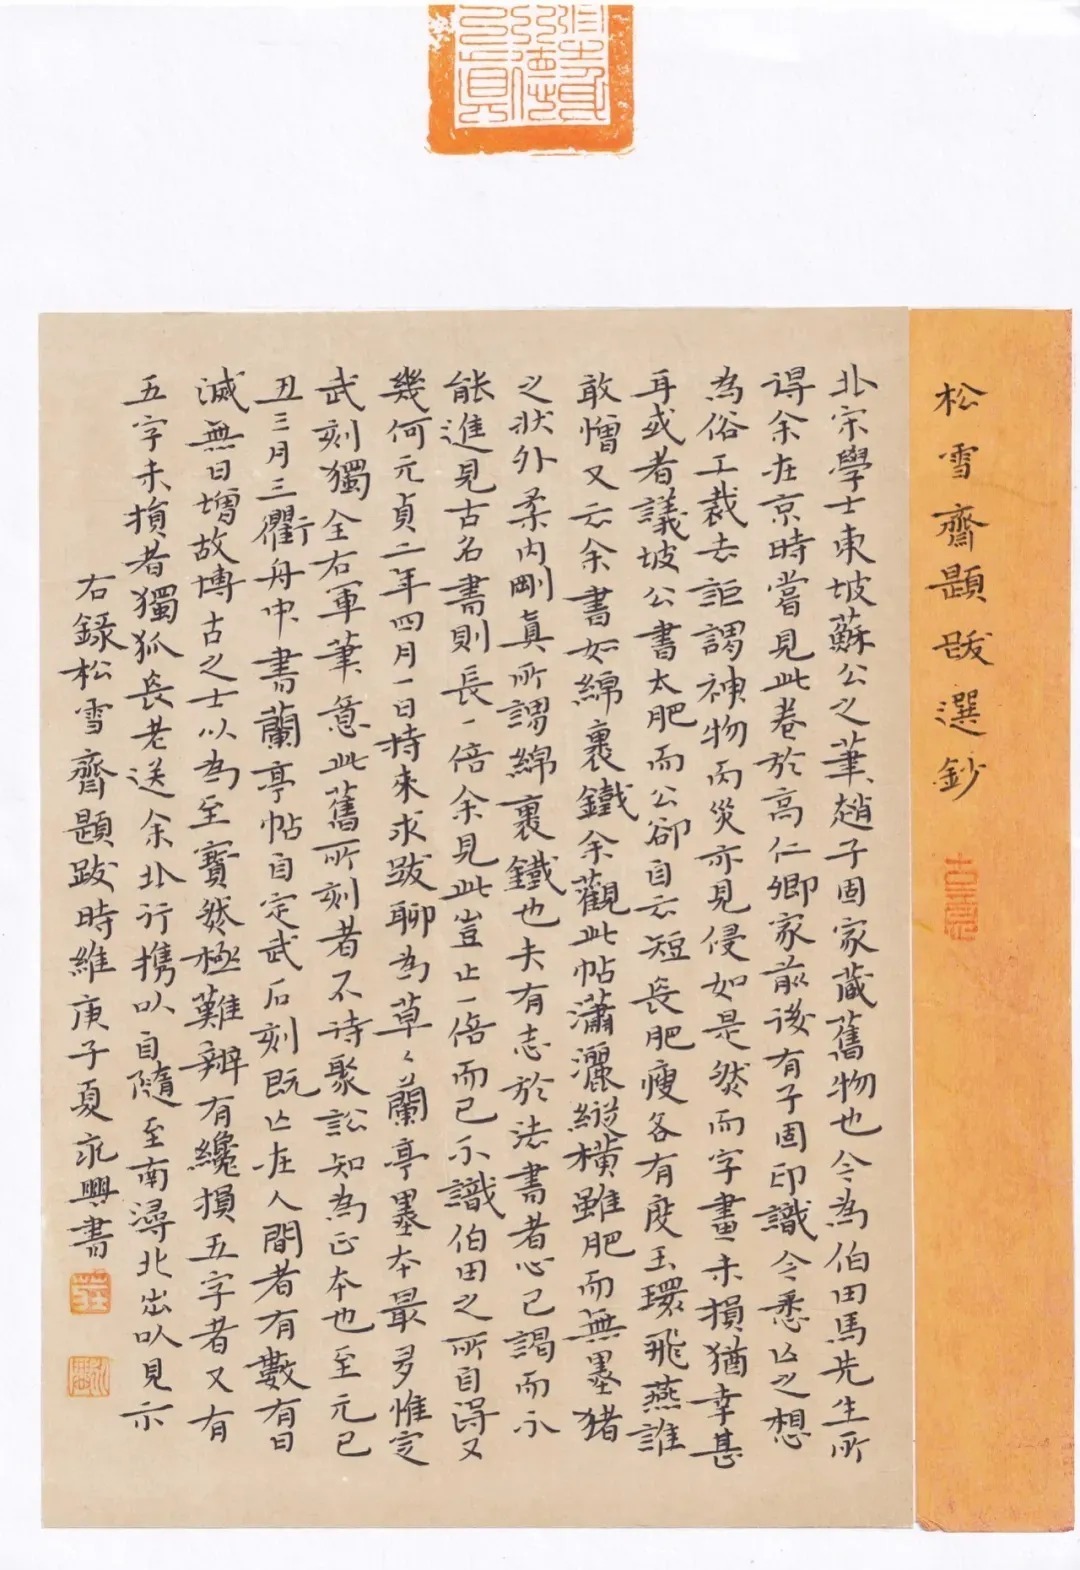 松雪齋題跋選鈔
北宋學士東坡蘇公之筆趙子固家藏舊物也今為伯田馬先生所
得余在京時嘗見此卷於高仁卿家前後有子固印識今悉亡之想
為俗工裁去詎謂神物而災亦見侵如是然而字畫未損猶幸甚
耳或者議坡公書太肥而公卻自云短長肥瘦各有度玉環飛燕誰
敢憎又云余書如綿裹鐵余觀此帖瀟灑縱橫雖肥而無墨猪
之狀外柔內剛真所謂綿裹鐵也夫有志於法書者心已謁而不
能進見古名書則長一倍余見此豈止一倍而已不識伯田之所自得又
幾何元貞二年四月一日持來求跋聊為草々蘭亭墨本最多惟定
武刻獨全右軍筆意此舊所刻者不待聚訟知為正本也至元己
丑三月三衢舟中書蘭亭帖自定武石刻既亡在人間者有數有日
減無日增故博古之士以為至寶然極難辨有纔損五字者又有
五字未損者獨孤長老送余北行携以自隨至南潯北出以見示
右錄松雪齋題跋時維庚子夏永興書